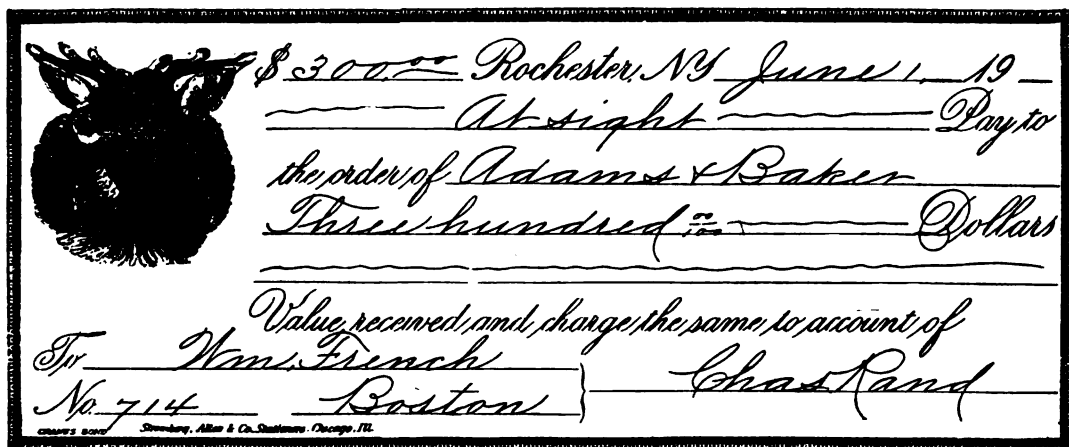 $ 300.00 Rochester, NY June 1, 19
At sight Pay to
the order of Adams & Baker
Three hundred 00/100 Dollars
Value received and charge the same to account of
To Wm. French
Chas Rand
No. 714 Boston
CRANE'S BOND Stromberg, Allen & Co. Stationers. Chicago, Ill.